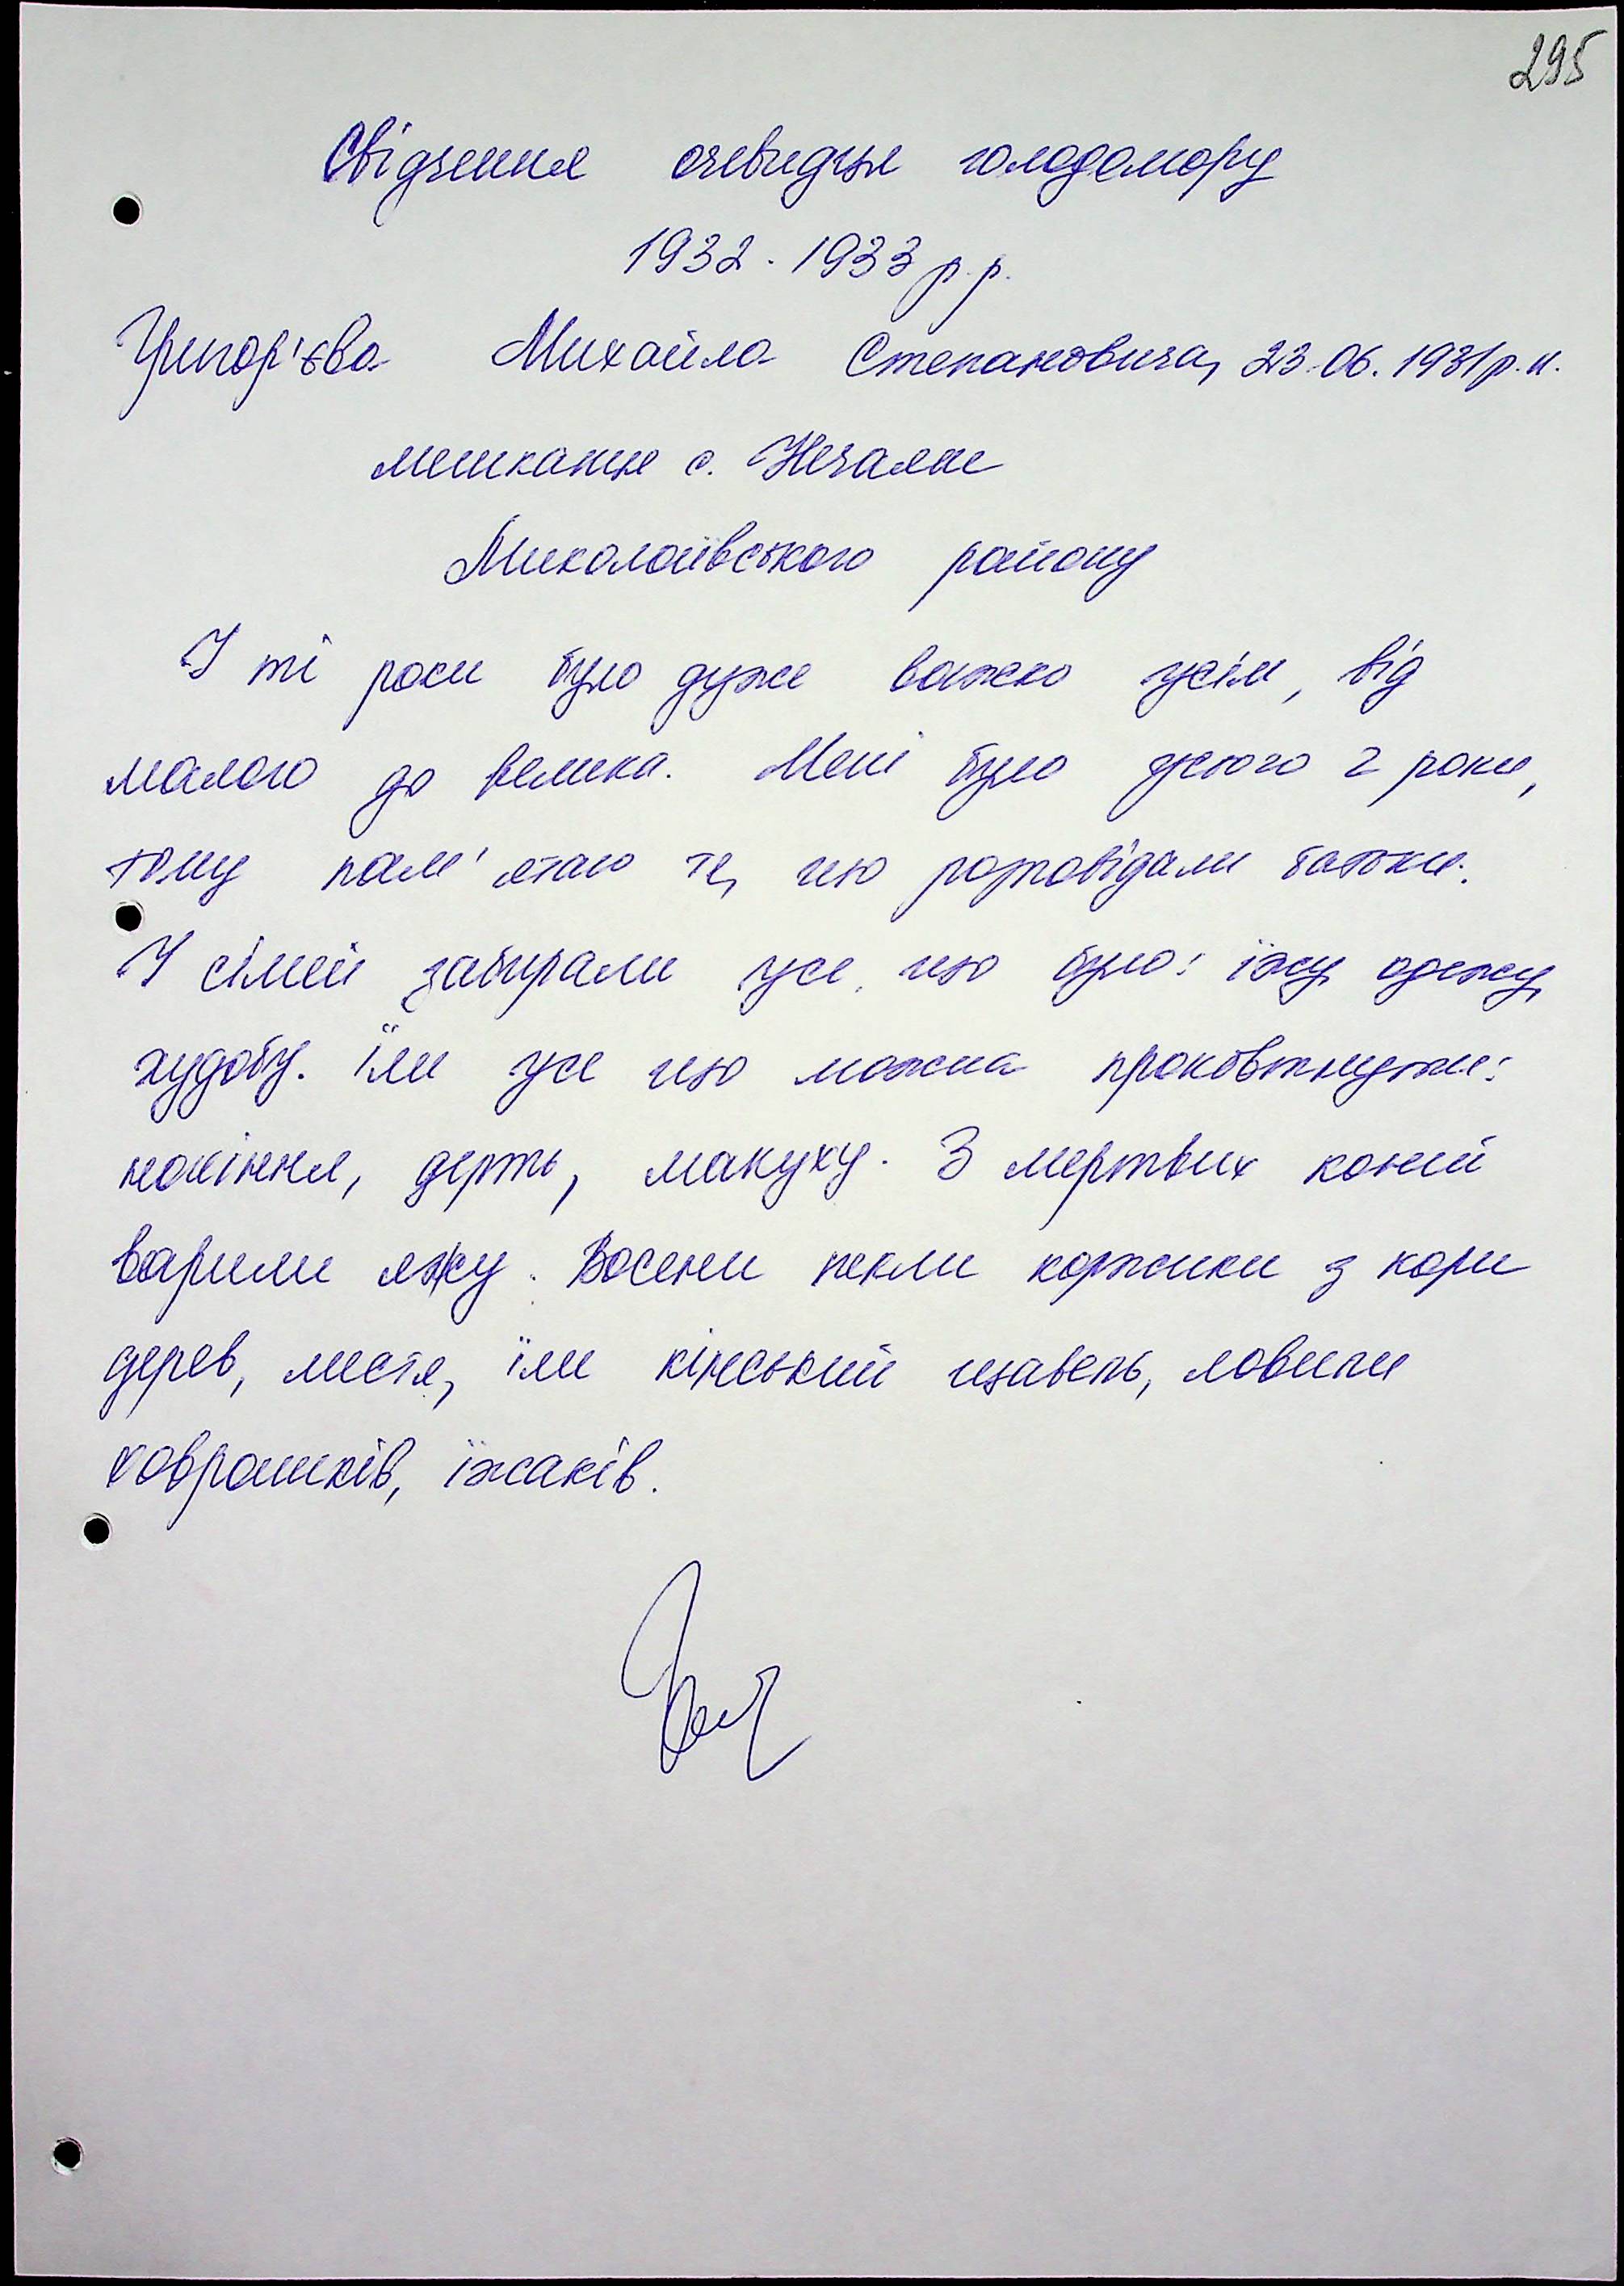 295
Свідчення очевидця голодомору
1932-1933 р.р.
Григор'єва Михайла Степановича, 23.06.1931 р.н.
мешканця с. Нечаяне
Миколаївського району
У ті роки було дуже важко усім, від
малого до велика. Мені було усього 2 роки,
тому пам'ятаю те, що розповідали батьки.
У сімей забирали усе, що було: їжу, одежу,
худобу. Їли усе що можна проковтнути:
насіння, дерть, макуху. З мертвих коней
варили їжу. Восени пекли коржики з кори
дерев, листя, їли кінський щавель, ловили
ховрашків, їжаків.